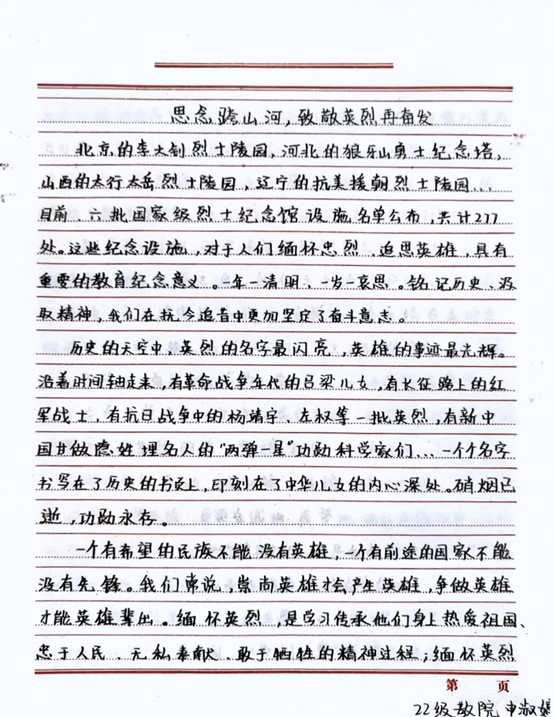 思念跨山河，致敬英烈再奋发
北京的李大钊烈士陵园，河北的狼牙山勇士纪念塔，
山西的太行太岳烈士陵园，辽宁的抗美援朝烈士陵园…
目前、六批国家级烈士纪念馆设施名单公布，共计277
处。这些纪念设施，对于人们缅怀忠烈、追思英雄，具有
重要的教育纪念意义。一年一清明，一岁一哀思。铭记历史、汲
取精神，我们在抚今追昔中更加坚定了奋斗意志。
历史的天空中，英烈的名字最闪亮，英雄的事迹最光辉。
沿着时间轴走来，有革命战争年代的吕梁儿女，有长征路上的红
军战士，有抗日战争中的杨靖宇、左权等一批英烈，有新中
国甘做隐姓埋名人的“两弹一星”功勋科学家们…一个个名字
书写在了历史的书页上，印刻在了中华儿女的内心深处。硝烟已
逝，功勋永存。
一个有希望的民族不能没有英雄，一个有前途的国家不能
没有先锋。我们常说，崇尚英雄才会产生英雄，争做英雄
才能英雄辈出。缅怀英烈，是学习传承他们身上热爱祖国、
忠于人民、无私奉献、敢于牺牲的精神过程；缅怀英烈
第 页
22级教院申淑